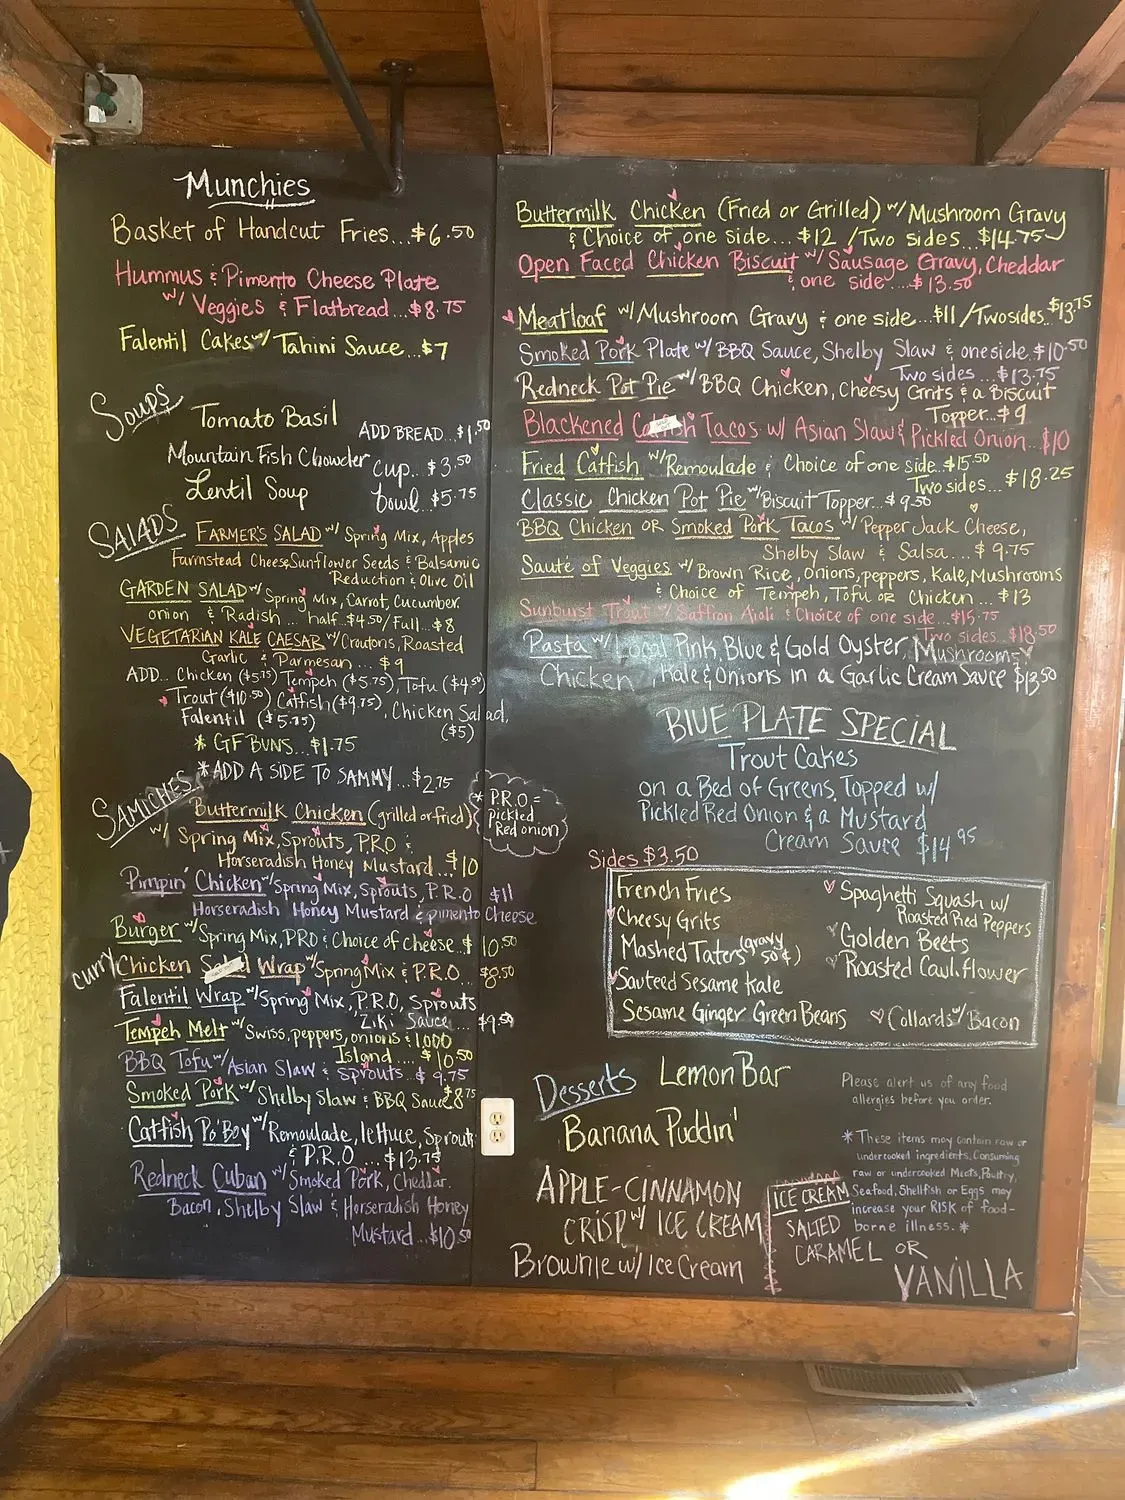 Munchies
Basket of Handcut Fries...$6.50
Hummus & Pimento Cheese Plate
w/ Veggies & Flatbread...$8.75
Falentil Cakes w/ Tahini Sauce...$7
Soups
Tomato Basil
ADD BREAD...$1.50
Mountain Fish Chowder
Cup..$3.50
Lentil Soup
bowl..$5.75
SALADS
FARMER'S SALAD w/ Spring Mix, Apples
Farmstead Cheese, Sunflower Seeds & Balsamic
Reduction & Olive Oil
GARDEN SALAD w/ Spring Mix, Carrot, Cucumber,
onion & Radish... half..$4.50/Full...$8
VEGETARIAN KALE CAESAR w/ Croutons, Roasted
Garlic & Parmesan...$9
ADD... Chicken ($5.75) Tempeh ($5.75), Tofu ($4.50)
Trout ($10.50) Catfish ($9.75), Chicken Salad,
Falentil ($5.75)
($5)
* GF BUNS...$1.75
*ADD A SIDE TO SAMMY...$2.75
SAMICHES
Buttermilk Chicken (grilled or fried)
w/ Spring Mix, Sprouts, PRO &
Horseradish Honey Mustard...$10
* P.R.O =
pickled
Red onion
Pimpin' Chicken w/ Spring Mix, Sprouts, P.R.O $11
Horseradish Honey Mustard & pimento Cheese
Burger w/ Spring Mix, PRO & Choice of cheese..$10.50
curry Chicken Wrap w/ Spring Mix & P.R.O. $8.50
Falentil Wrap w/ Spring Mix, P.R.O, Sprouts
Ziki Sauce... $9.50
Tempeh Melt w/ Swiss, peppers, onions & 1000
Island....$10.50
BBQ Tofu w/ Asian Slaw & Sprouts..$9.75
Smoked Pork w/ Shelby Slaw & BBQ Sauce $8.75
Catfish Po'Boy w/ Remoulade, lettuce, Sprouts
& P.R.O....$13.75
Redneck Cuban w/ Smoked Pork, Cheddar,
Bacon, Shelby Slaw & Horseradish Honey
Mustard...$10.50
Buttermilk Chicken (Fried or Grilled) w/ Mushroom Gravy
& Choice of one side...$12 /Two sides...$14.75
Open Faced Chicken Biscuit w/ Sausage Gravy, Cheddar
& one side....$13.50
Meatloaf w/ Mushroom Gravy & one side...$11 /Two sides...$13.75
Smoked Pork Plate w/ BBQ Sauce, Shelby Slaw & one side.$10.50
Two sides...$13.75
Redneck Pot Pie w/ BBQ Chicken, Cheesy Grits & a Biscuit
Topper..$9
Blackened Catfish Tacos w/ Asian Slaw & Pickled Onion...$10
Fried Catfish w/ Remoulade & Choice of one side..$15.50
Two sides...$18.25
Classic Chicken Pot Pie w/ Biscuit Topper..$9.50
BBQ Chicken OR Smoked Pork Tacos w/ Pepper Jack Cheese,
Shelby Slaw & Salsa...$9.75
Sauté of Veggies w/ Brown Rice, Onions, peppers, Kale, Mushrooms
& Choice of Tempeh, Tofu or Chicken...$13
Sunburst Trout w/ Saffron Aioli & Choice of one side...$15.75
Two sides...$18.50
Pasta w/ Local Pink, Blue & Gold Oyster Mushrooms
Chicken, Kale & Onions in a Garlic Cream Sauce $13.50
BLUE PLATE SPECIAL
Trout Cakes
on a Bed of Greens, Topped w/
Pickled Red Onion & a Mustard
Cream Sauce $14.95
Sides $3.50
French Fries
Cheesy Grits
Mashed Taters (gravy 50¢)
Sauteed Sesame Kale
Sesame Ginger Green Beans
Spaghetti Squash w/
Roasted Red Peppers
Golden Beets
Roasted Cauliflower
Collards w/ Bacon
Desserts
Lemon Bar
Banana Puddin'
APPLE-CINNAMON
CRISP w/ ICE CREAM
Brownie w/ Ice Cream
ICE CREAM
SALTED
CARAMEL OR
VANILLA
Please alert us of any food
allergies before you order.
* These items may contain raw or
undercooked ingredients. Consuming
raw or undercooked Meats, Poultry,
Seafood, Shellfish or Eggs may
increase your RISK of food-
borne illness. *